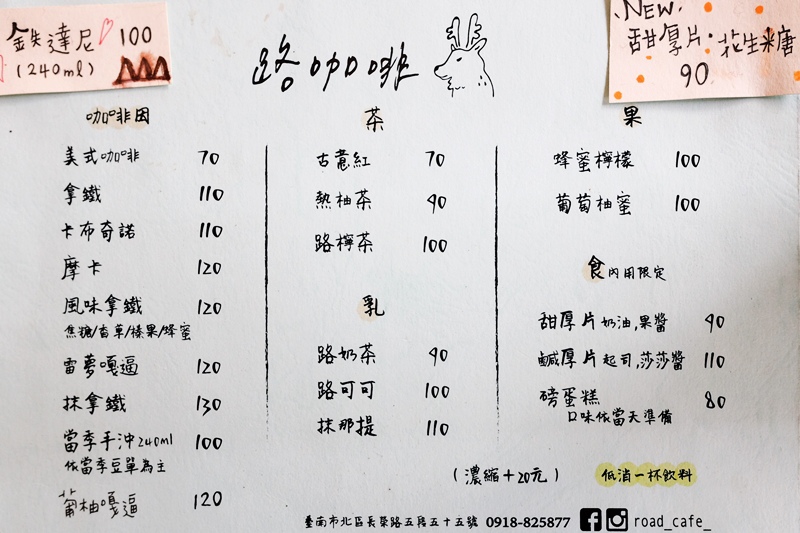 鉄達尼 100
(240ml)
NEW.
甜厚片·花生米唐
90
路咖啡
咖啡因
美式咖啡 70
拿鐵 110
卡布奇諾 110
摩卡 120
風味拿鐵 120
焦糖/香草/榛果/蜂蜜
雷夢嘎逼 120
抹拿鐵 130
當季手沖240ml 100
依當季豆單為主
葡柚嘎逼 120
茶
古意紅 70
熱柚茶 90
路檸茶 100
乳
路奶茶 90
路可可 100
抹那提 110
果
蜂蜜檸檬 100
葡萄柚蜜 100
食內用限定
甜厚片奶油,果醬 90
鹹厚片起司,莎莎醬 110
磅蛋糕 80
口味依當天準備
(濃縮+20元)
低消一杯飲料
臺南市北區長榮路五段五十五號 0918-825877 road_cafe_